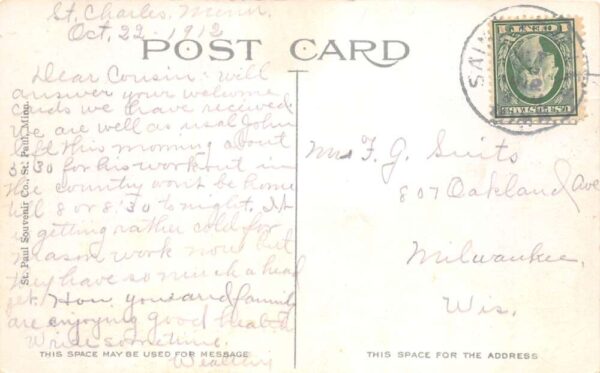 St. Charles, Minn.
Oct. 22 - 1912
POST CARD
Dear Cousin: will
answer your welcome
cards we have received.
We are well as usual John
left this morning about
6:30 for his work out in
the country wont be home
till 8 or 8:30 tonight. It
is getting rather cold for
mason work now but
they have so much ahead
yet. Hope you and family
are enjoying good health
Write sometime.
Wealthy
THIS SPACE MAY BE USED FOR MESSAGE
St. Paul Souvenir Co., St. Paul, Minn.
SAIN
Mrs F. G. Suits
807 Oakland Ave
Milwaukee,
Wis.
THIS SPACE FOR THE ADDRESS